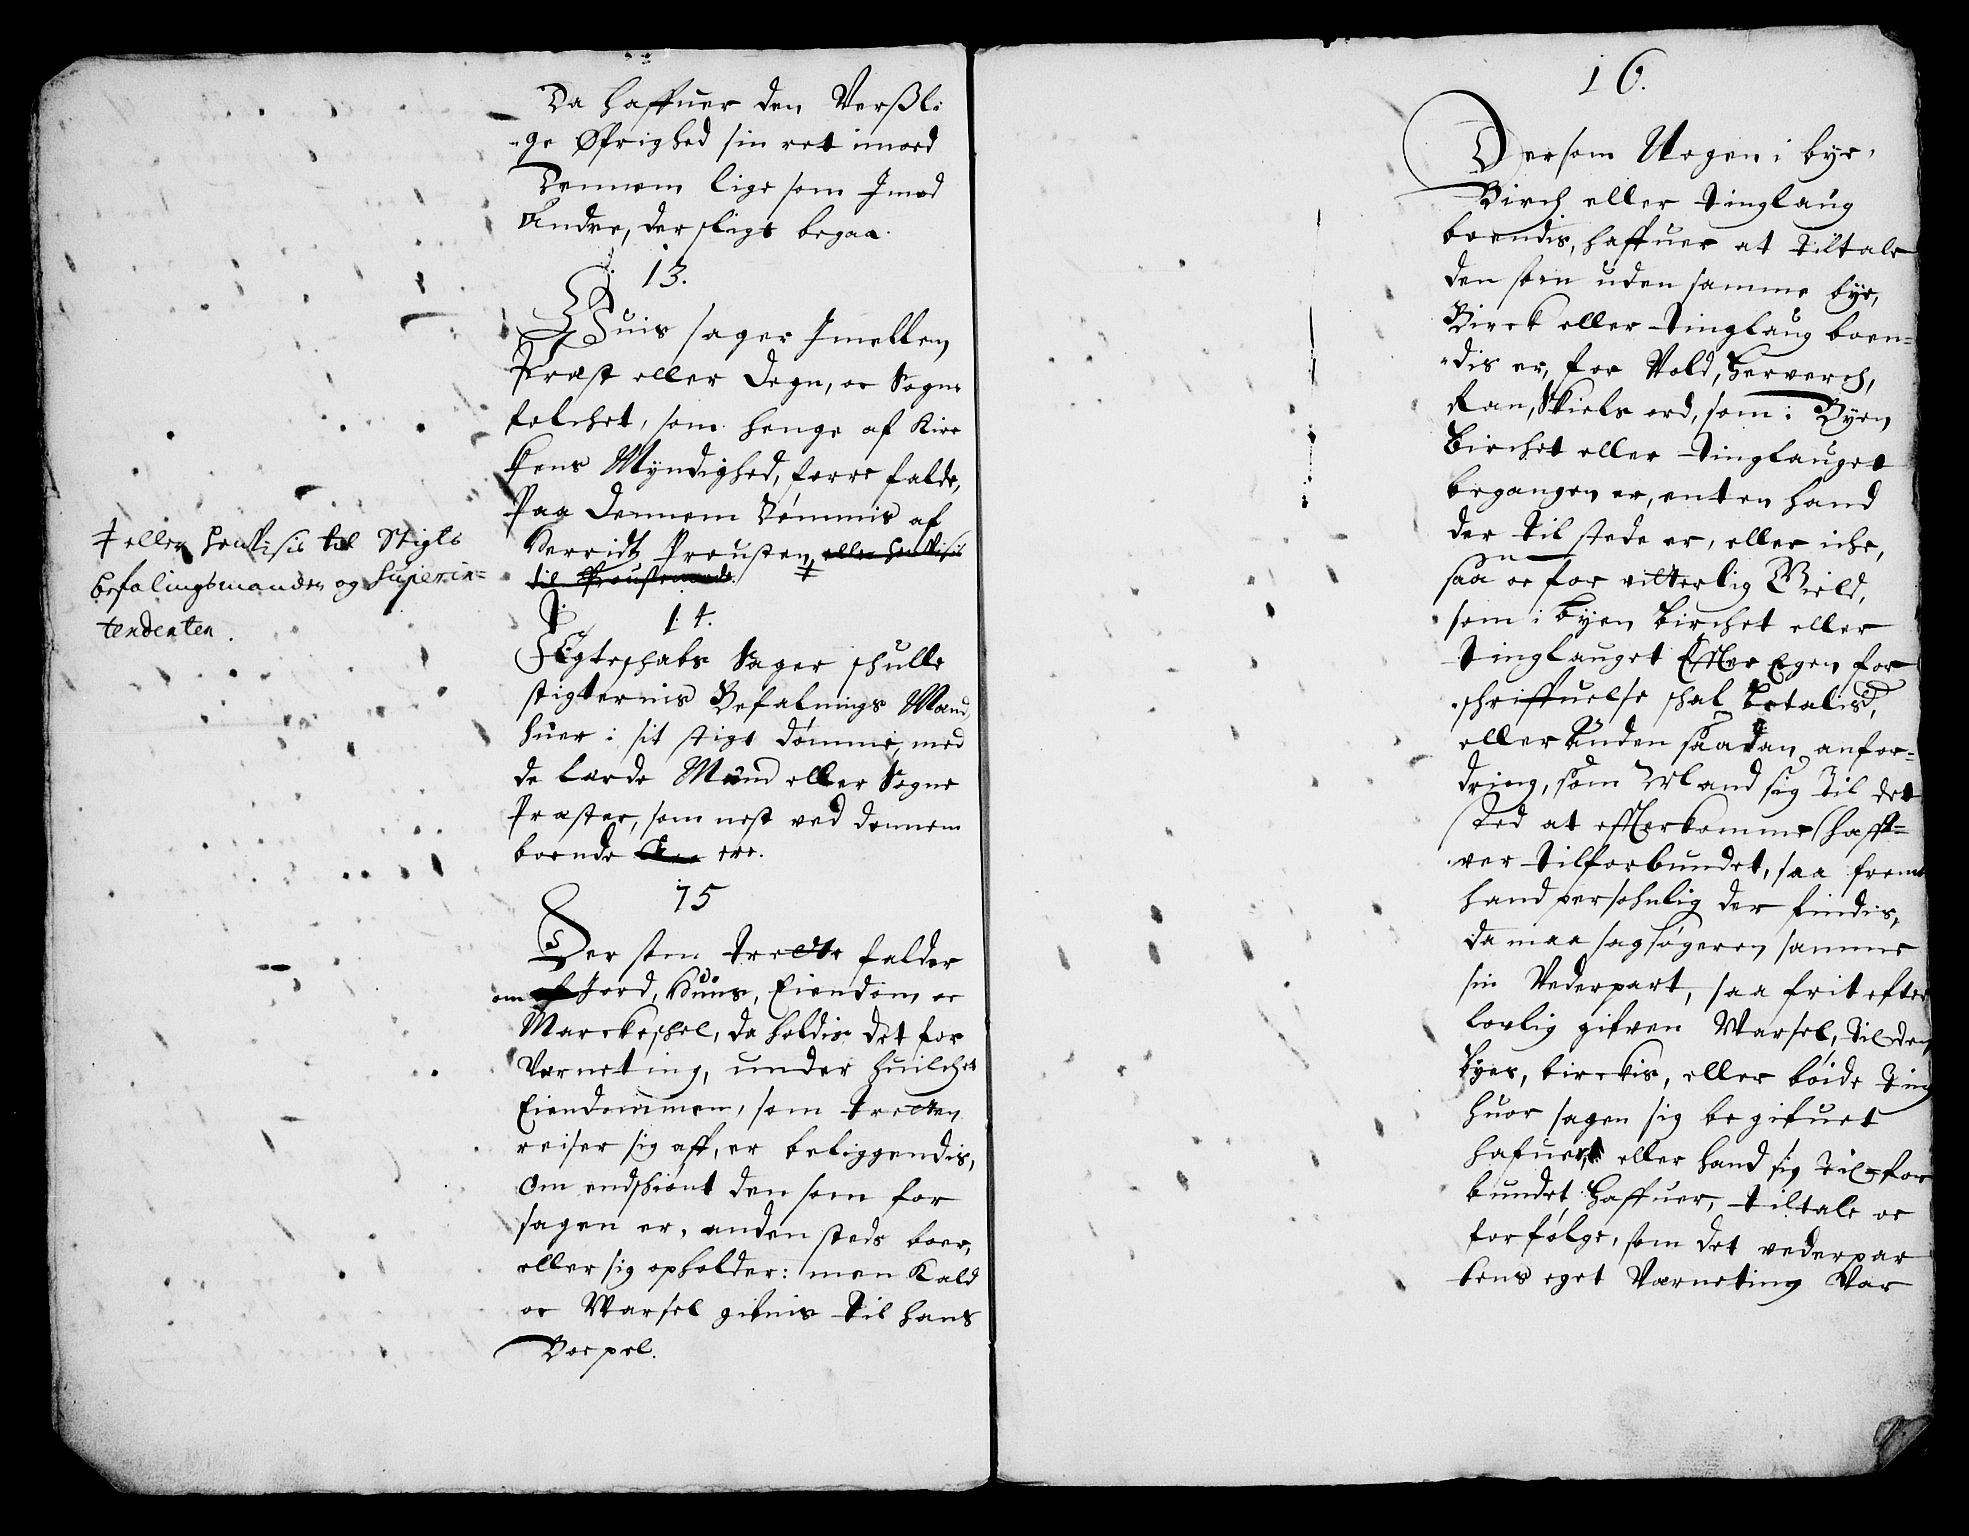 Da haffuer den Verßli
-ge Øfrighed sin ret imod
Dennem lige som Jmod
Andre, der sligt begaa.
13.
Huis sager Jmellem
Præst eller Degn, oc Sogne
folchet, som henge af Kirc
kens Myndighed, forre falde,
Paa Dennem dømmis af
Herridtz Prousten, ‡ eller henvisis
til Proustemode.
‡ eller henvisis til Stigts
befalingsmanden og Superin=
tendenten.
14.
Ægteschabs Sager schulle
stigternis Befalnings Mænd,
huer i sit stigt dømme, med
de lærde Mænd eller Sogne
Præster, som nest ved dennem
boende ere.
15
Der som trecte falder
om Jord, Huus, Eiendom, oc
Marckeschel, da holdis det for
Værneting, under huilchet
Eiendommen, som trecten
reiser sig aff, er beliggendis,
Om endschiønt den som for
sagen er, anden steds boer,
eller sig opholder: men Kald
oc Warsel gifuis til hans
Boepel.
16.
Dersom Nogen i bye,
Birch eller tinglaug
boendis, haffuer at tiltale
den som uden samme bye,
Birck eller tinglaug boen=
=dis er, for Vold, Herverch,
Ran, Skiels ord, som i Byen
Birchet eller tinglauget
begangen er, enten hand
der til stede er, eller iche,
saa oc for vitterlig Gield,
som i byen birchet eller
tinglauget Effter Egen for
schriffuelse schal betalis,
eller Anden saadan anfor=
dring, som Mand sig til det
sted at effterkomme haff=
ver tilforbundet, saa fremt
hand persohnlig der findis,
da maa sagsøgeren samme
sin Vederpart, saa frit efter
lovlig gifven Warsel, til den
byes, birckis, eller bøide ting
huor sagen sig begifuet
hafuer, eller hand sig til for
bundet haffuer, tiltale oc
forfølge, som det vederpar
tens eget Værneting Var